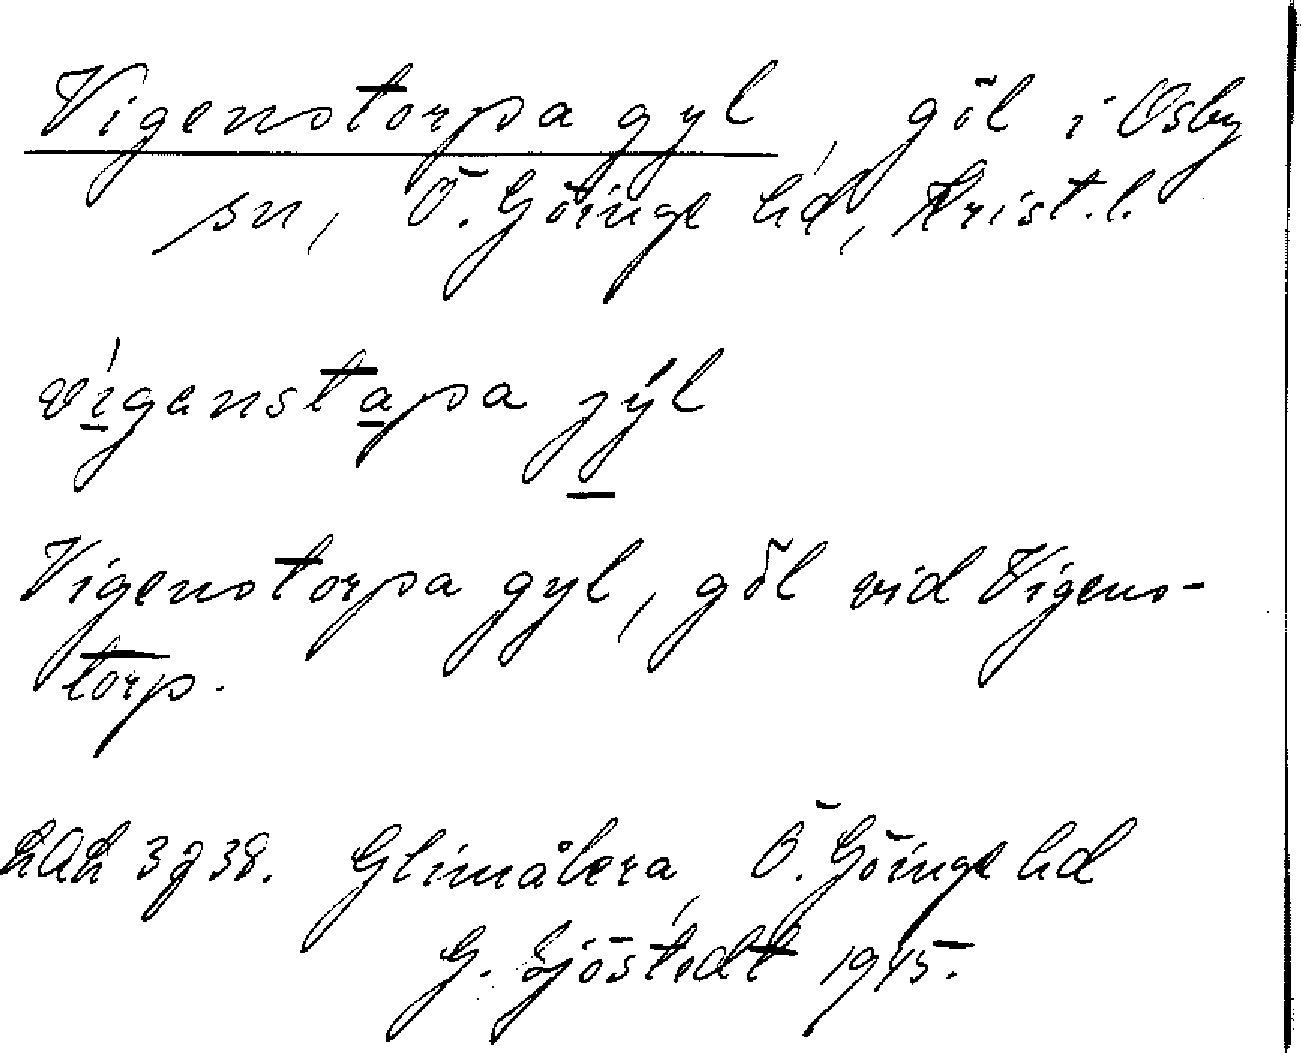 Vigenstorpa gyl, göl i Osby
sn, Ö. Göinge hd, Krist. l.
víganstapa jýl
Vigenstorpa gyl, göl vid Vigens-
torp.
LAL 3738. Glimåkra, Ö. Göinge hd
G. Sjöstedt 1945.